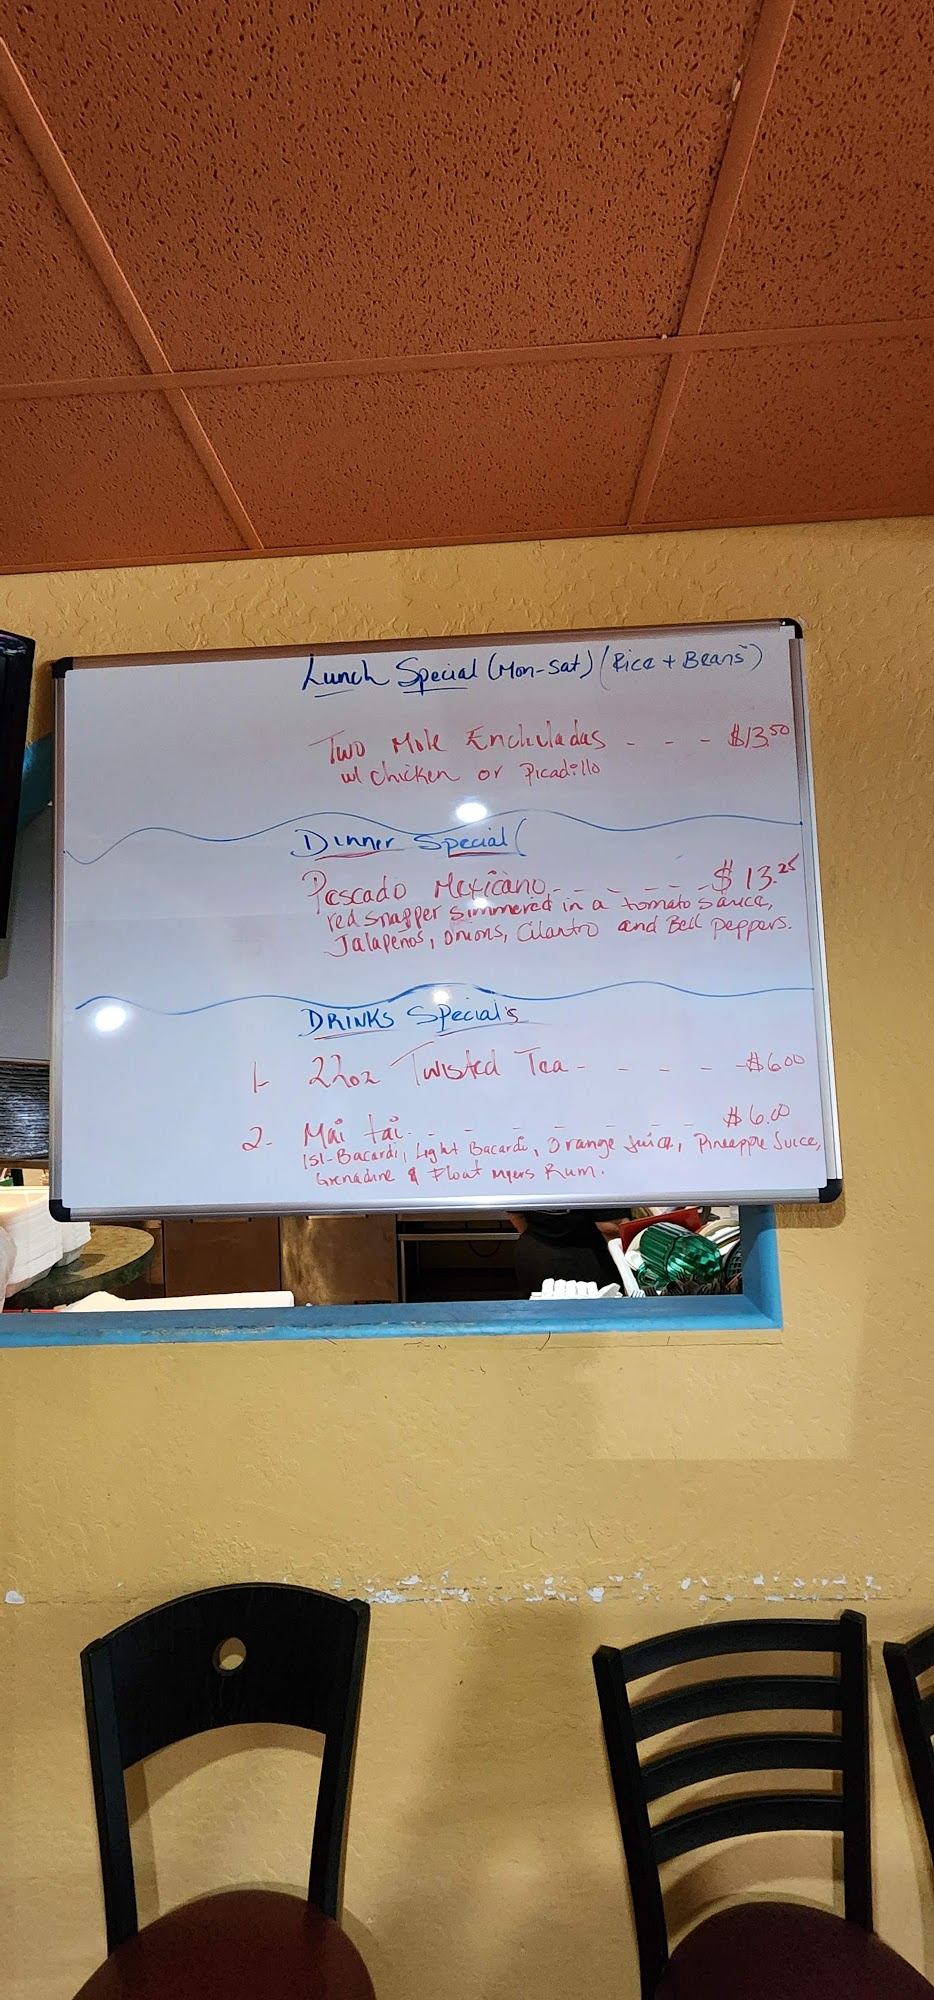 Lunch Special (Mon-Sat) (Rice + Beans)
Two Mole Enchiladas - - - $13.50
w/ chicken or Picadillo
Dinner Special
Pescado Mexicano - - - - - $13.25
red snapper simmered in a tomato sauce,
Jalapeños, onions, Cilantro and Bell peppers.
DRINKS Special's
1- 22oz Twisted Tea - - - - - $6.00
2- Mai tai - - - - - - $6.00
151-Bacardi, Light Bacardi, Orange Juice, Pineapple Juice,
Grenadine & Float Myers Rum.